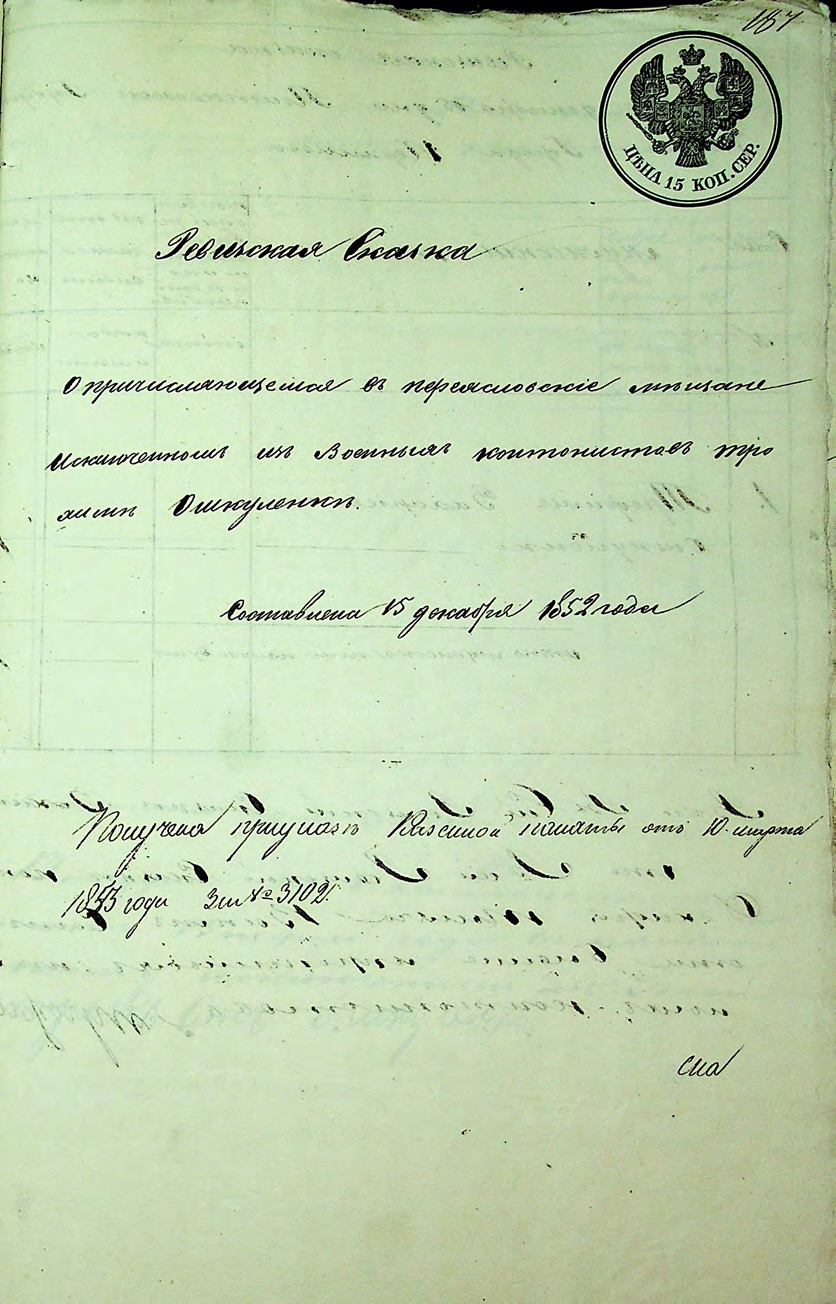 187
ЦѢНА 15 КОП. СЕР.
Ревизская Сказка
О причисляющемся въ переясловскіе мѣщане
Исключенномъ изъ Военныхъ контонистовъ тро
химѣ Ошкуленкѣ.
Составлена 15 декабря 1852 года
Получена при указѣ Казенной палаты отъ 10 марта
1853 года за № 3102.